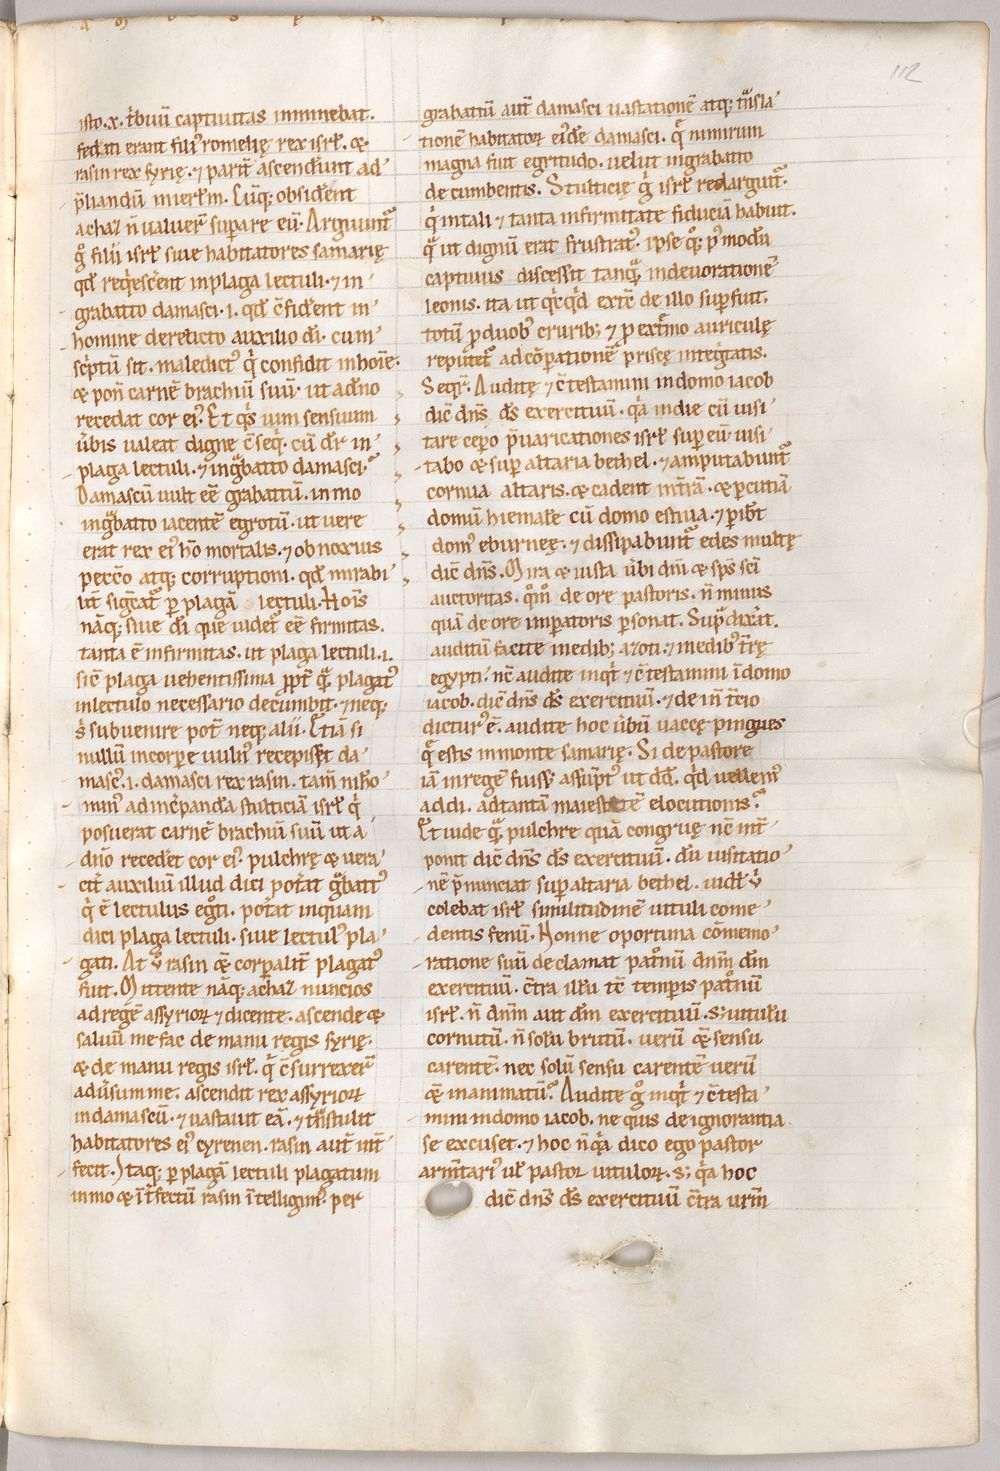 112
isto .x. t̾buū captiuitas imminebat.
fed̾ati erant fili᷒ romelię rex isrl̄. &
rasin rex syrię. ⁊ parit̄ ascend̾unt ad
p̄liandū in ierl̄m. Cūq; obsid̾ent
achaz n̄ ualuer̄ sup̱are eū. Arguunt᷑
g͛ filii isrl̄ siue habitatores samarię
qd̄ req̾esc̾ent in plaga lectuli. ⁊ in
grabatto damasci .i. qd̄ c̄fid̾ent in
homine derelicto auxilio dī. cum
sc̾ptū sit. maledict᷒ q̾ confidit in hoīe.
& pon̄ carnē brachiū suū. ut a dn̄o
recedat cor ei᷒. Et q̾s uim sensuum
ūbis ualeat digne c̄seq̾. cū dr̄ in
plaga lectuli. ⁊ in g̾batto damasci.
Damascū uult eē̄ grabattū. immo
in g̾batto iacentē egrotū. ut uere
erat rex ei᷒ hō mortalis. ⁊ obnoxius
pecc̄o atq; corruptioni. qd̄ mirabi
lit̄ sig̾cat᷑ per plagā lectuli. Hoīs
nāq; siue dī que uidet᷑ eē firmitas.
tanta ē infirmitas. ut plaga lectuli .i.
sic̄ plaga uehentissima ꝓpt̄ q̾ plagat᷒
in lectulo necessario decumbit. ⁊ neq;
s̾ subuenire pot̄ neq; alii. Etiā si
nullū in corpore uuln᷒ recepiss̾et da
masc᷒ .i. damasci rex rasin. tam̄ nih̾o
min᷒ ad inc̾pand̾a stulticiā isrl̄ q̾
posuerat carnē brachiū suū ut a
dn̄o reced̾et cor ei᷒. pulchrę & uera
cit̄ auxiliū illud dici pot̾at g̾batt᷒
q̾ ē lectulus eg̾ti. pot̾at inquam
dici plaga lectuli. siue lectul᷒ pla
gati. At ū rasin & corp̱alit̄ plagat᷒
fuit. Mittente nāq; achaz nuncios
ad regē assyrioꝝ ⁊ dicente. ascende &
saluū me fac de manu regis syrię.
& de manu regis isrl̄. q̾ c̄surrexer̄
aduersum me. ascendit rex assyrioꝝ
in damascū. ⁊ uastauit eā. ⁊ t̾nstulit
habitatores ei᷒ cyrenen. rasin aut̄ int̄
fecit. Itaq; per plagā lectuli plagatum
immo & int̄fectū rasin intelligim᷒. per
grabattū aut̄ damasci uastationē atq; t̾nsla
tionē habitatoꝝ ei᷒de damasci. q̾ nimirum
magna fuit egritudo. uelut in grabatto
decumbentis. Stulticię g͛ isrl̄ redarguit᷑.
q̾ in tali ⁊ tanta infirmitate fiduciā habuit.
q̾ ut dignū erat frustrat᷒. ipse q͛q; p᷒ modū
captiuus discessit tanq̾ in deuorationē
leonis. ita ut q̾cq̾d extē de illo sup̱fuit.
totū ꝓ duob᷒ crurib; ⁊ ꝓ ext̾mo auriculę
reputet᷑ ad cōparationē priscę integ̾tatis.
Seqr̄. Auditę ⁊ c̄testamini in domo iacob
dic̄ dn̄s ds̄ exercituū. q̾a in die cū uisi
tare cep̱o p̄uaricationes isrl̄ sup̱ eū uisi
tabo & sup̱ altaria bethel. ⁊ amputabunt᷑
cornua altaris. & cadent in t̾rā. & p̱cutiā
domū hiemalē cū domo estiua. ⁊ p̱ibūt
dom᷒ eburneę. ⁊ dissipabunt᷑ edes multę
dic̄ dn̄s. Mira & iusta ūbi dn̄i & sp̄s sc̄i
auctoritas. q̾m̄ de ore pastoris. n̄ minus
quā de ore imp̱atoris p̱sonat. Sup̾ dix̾at.
auditū facite in edib; azoti. ⁊ in edib᷒ t̾rę
egypti. nc̄ audite inq̾t ⁊ c̄testamini ī domo
iacob. dic̄ dn̄s ds̄ exercituū. ⁊ dein̄ t̾cio
dictur᷒ ē. audite hoc ūbū uaccę pingues
q̄ estis in monte samarię. Si de pastore
iā in regē fuiss; assūpt᷒ ut dd̄. q̾d uellem᷒
addi. ad tantā maiestatē elocutionis.
Et uide q̾ pulchre quā congruę nc̄ int̄
ponit dic̄ dn̄s ds̄ exercituū. dū uisitatio
nē p̄nunciat sup̱ altaria bethel. uidel̄ ū
colebat isrl̄ similitudinē uituli come
dentis fenū. Nonne oportuna cōmemo
ratione suū declamat pat̾nū dn̄m dm̄
exercituū. c̄tra illū tc̄ temp̱is pat̾nū
isrl̄. n̄ dn̄m aut dm̄ exercituū. s; uitulū
cornutū. n̄ solū brutū. uerū & sensu
carentē. nec solū sensu carentē uerū
& inanimatū. Audite g͛ inq̾t ⁊ c̄testa
mini in domo iacob. ne quis de ignorantia
se excuset. ⁊ hoc n̄ q̾a dico ego pastor
arm̄tari᷒ ul̄ pastor uituloꝝ. s; q̾a hoc
dic̄ dn̄s ds̄ exercituū c̄tra urm̄